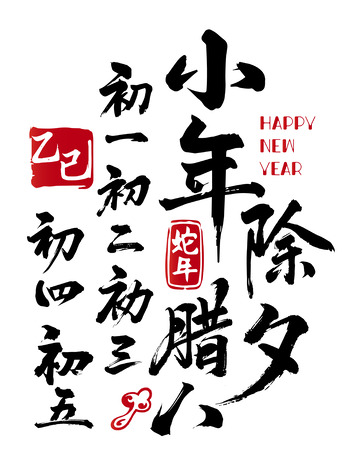 小年
除夕
HAPPY
NEW
YEAR
蛇年
腊八
初一初二初三
乙巳
初四初五